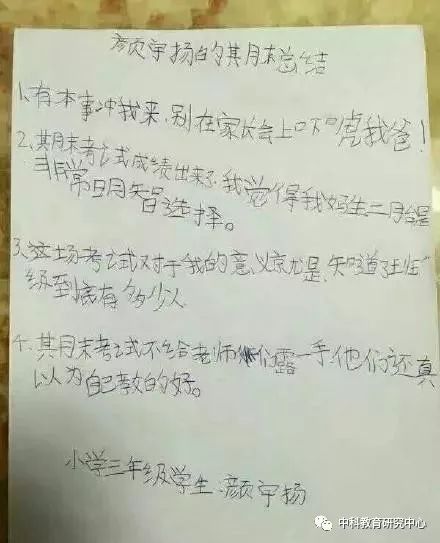 颜宇扬的其月末总结
1、有本事冲我来,别在家长会上吓唬我爸!
2、其月末考试成绩出来了,我觉得我妈生二月台是
非常明智选择。
3、这场考试对于我的意义就是,知道了班
级到底有多少人
4、其月末考试不给老师们露一手,他们还真
以为自己教的好。
小学三年级学生:颜宇扬
中科教育研究中心